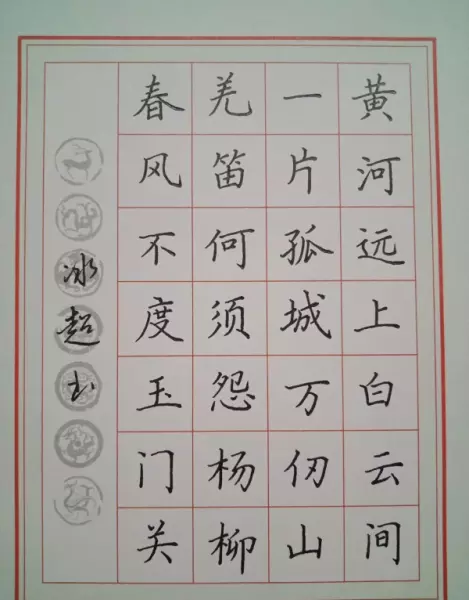 黄河远上白云间
一片孤城万仞山
羌笛何须怨杨柳
春风不度玉门关
冰超书